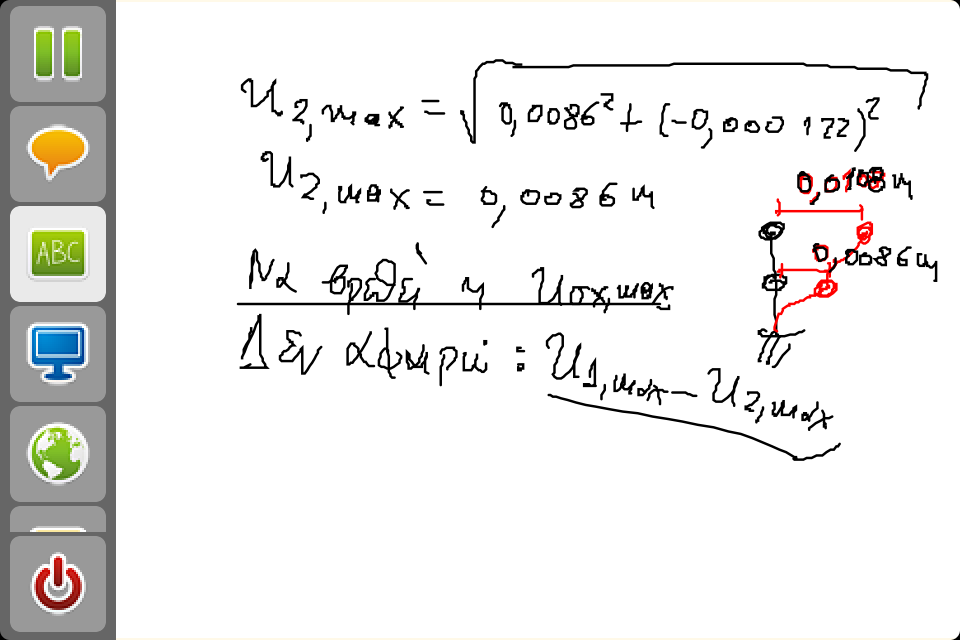 ABC
u2,max = √0,0086² + (-0,000122)²
u2,max = 0,0086 m
0,0108 m
0,0086 m
Να βρεθεί η uσχ,max
Δεν αφαιρώ : u1,max - u2,max